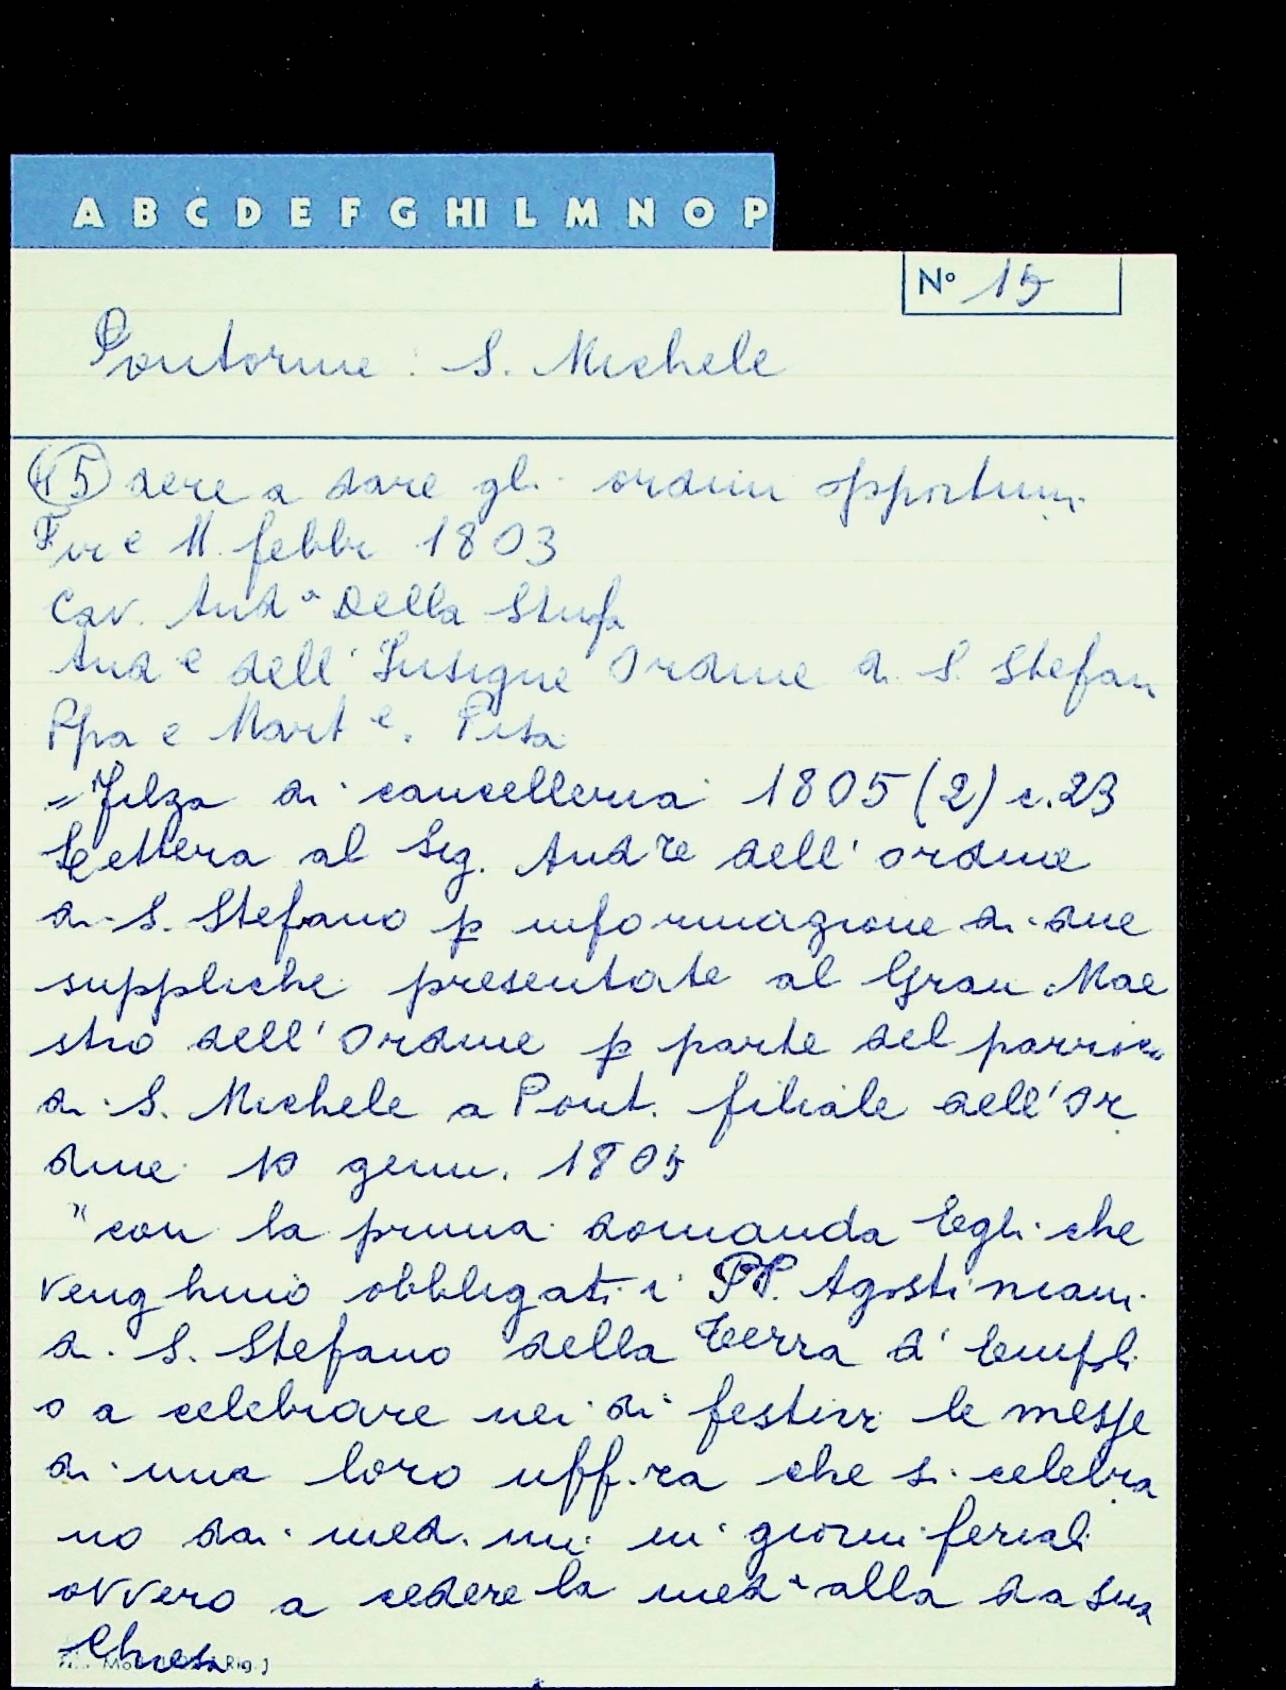 A B C D E F G HI L M N O P
N° 15
Pontorme: S. Michele
15 dere a dare gli ordini opportuni
Fir e 11 febbr 1803
Cav. Aud e Della Stufa
Aud e dell'Insigne Ordine di S. Stefan
Ppa e Mart e. Pisa
= Filza di cancelleria 1805 (2) c. 23
Lettera al Sig. Aud re dell'ordine
di S. Stefano p informazione di due
suppliche presentate al Gran Mae
stro dell'Ordine p parte del parroco
di S. Michele a Pont. filiale dell'Or
dine 10 genn. 1805
"con la prima domanda Egli che
venghino obbligati i PP. Agostiniani
di S. Stefano della Terra d'Empoli
o a celebrare nei dì festivi le messe
di una loro uff.ra che si celebra
no dai med.mi in giorni feriali
ovvero a cedere la med a alla da sua
Chiesa